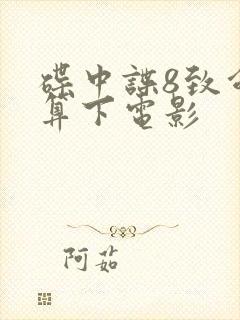 碟中諜8致命
算下電影
阿茹